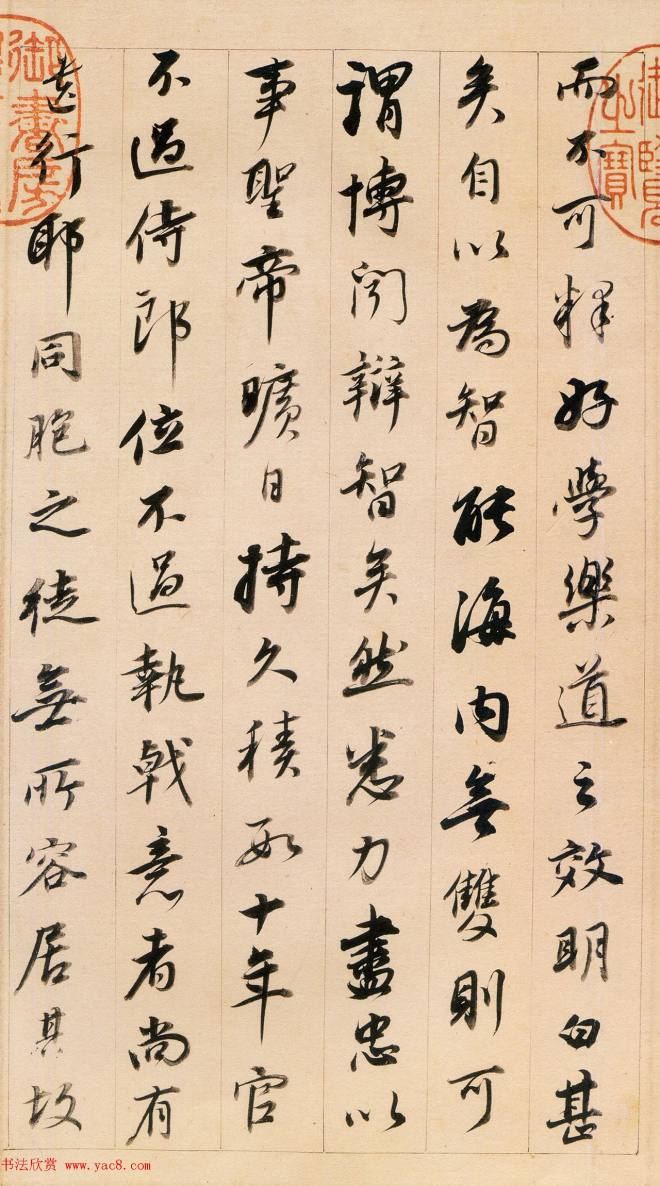 而不可释好學樂道之效明白甚
矣自以為智能海内無雙則可
謂博聞辯智矣然悉力盡忠以
事聖帝曠日持久積數十年官
不過侍郎位不過執戟意者尚有
遺行耶同胞之徒無所容居其故
御書房
御覽之寶
书法欣赏 www.yac8.com